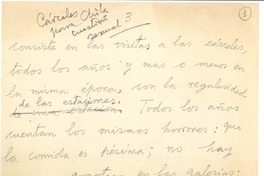 Cárceles Chile
para cuestión
sexual
3
consiste en las visitas a las cárceles,
todos los años y mas o menos en
la misma época, con la regularidad
de las estaciones.
Todos los años
cuentan los mismos horrores: que
la comida es pésima; no hay
en las galerías: